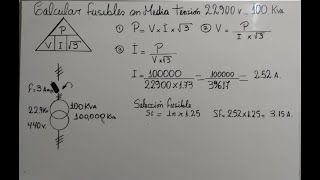 Calcular fusibles en Media Tensión 22900 V - 100 Kva
P
V I √3
① P = V x I x √3 ② V = P / I x √3
③ I = P / V x √3
I = 100000 / 22900 x 1.73 = 100000 / 39617 = 2.52 A.
F = 3 Am
22.9Kv
440v.
100 Kva
100,000 Kva
Selección fusible
Sf = In x 1.25 Sf = 2.52 x 1.25 = 3.15 A.